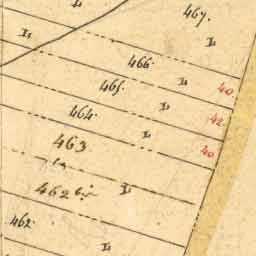 467.
466
40
465.
42
464
40
463
462 bis
462